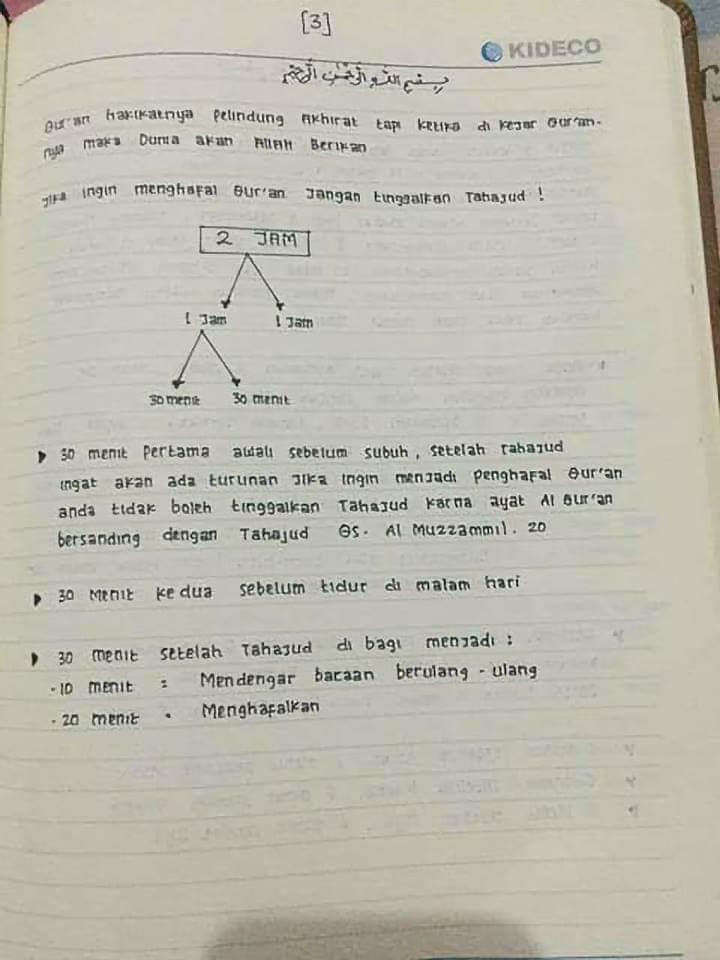 [3]
KIDECO
بسم الله الرحمن الرحيم
Qur'an hakikatnya Pelindung Akhirat tapi ketika di kejar Qur'an-
nya maka Dunia akan Allah Berikan
Jika ingin menghafal Qur'an Jangan tinggalkan Tahajud !
2 JAM
1 Jam 1 Jam
30 menit 30 menit
30 menit Pertama awali sebelum subuh, setelah Tahajud
ingat akan ada turunan Jika ingin menjadi Penghafal Qur'an
anda tidak boleh tinggalkan Tahajud karna ayat Al Qur'an
bersanding dengan Tahajud QS. Al Muzzammil. 20
30 Menit kedua sebelum tidur di malam hari
30 menit setelah Tahajud di bagi menjadi :
- 10 menit : Mendengar bacaan berulang - ulang
- 20 menit • Menghafalkan